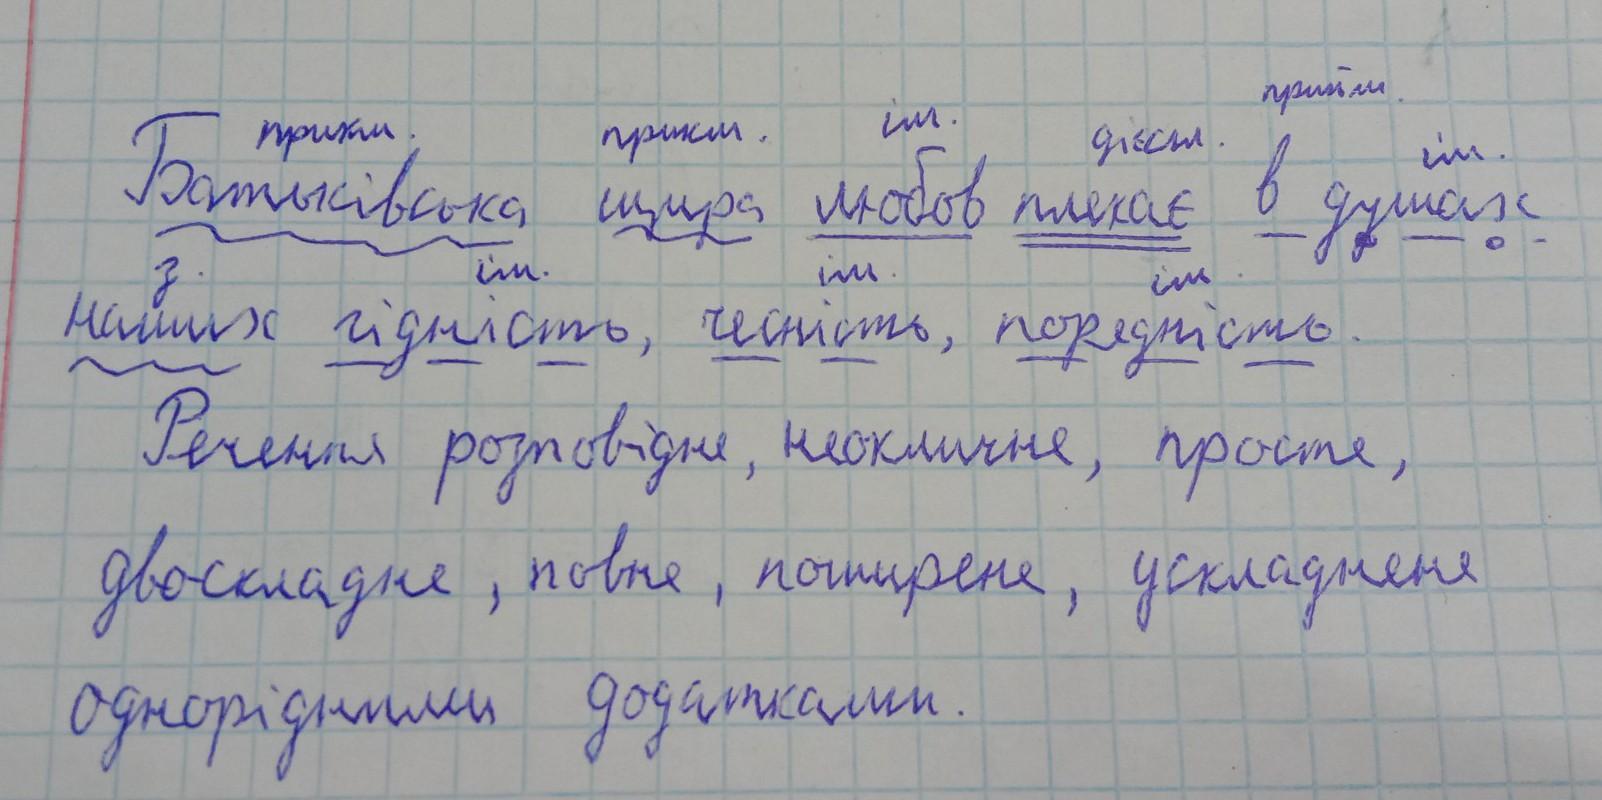 прикм. прикм. ім. дієсл. прийм. ім.
Батьківська щира любов плекає в душах
з. ім. ім. ім.
наших гідність, чесність, порядність.
Речення розповідне, неокличне, просте,
двоскладне, повне, поширене, ускладнене
однорідними додатками.